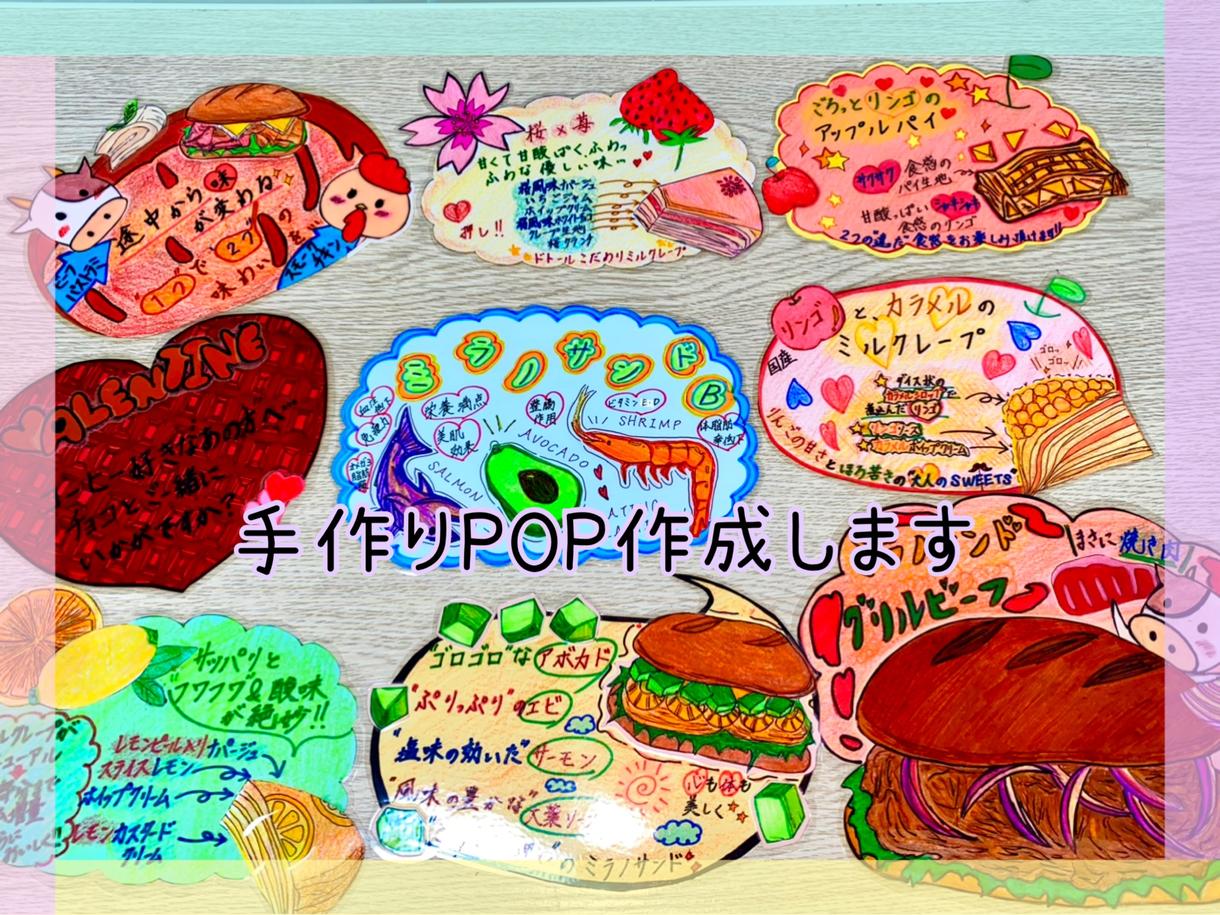 途中から味
が変わね
1つで2つの
味わいを
ビーフ
パストラミ
スモーク
チキン
桜×苺
甘くて甘酸っぱくふわっ
ふわな優しい味…
桜風味ナパージュ
いちごジャム
ホイップクリーム
桜風味ホワイトチョコ
クレープ生地
桜クランチ
推し!!
ドトールこだわりミルクレープ
ごろっとリンゴの
アップルパイ
サクサク食感の
パイ生地
甘酸っぱいシャキシャキ
食感のリンゴ
2つの"違"た食感をお楽しみ頂けます!!
VALENTINE
コーヒー好きなあの方へ
チョコとご一緒に
いかがですか?
ミラノサンドB
栄養満点
美肌
効果
整腸
作用
ビタミンE・D
体脂肪
SALMON
AVOCADO
SHRIMP
リンゴと、カラメルの
ミルクレープ
国産
ゴロッ
ゴロッ
ダイス状の
カラメルシロップで
煮込んだリンゴ
リンゴソース
ホイップクリーム
りんごの甘さとほろ苦さの"大人のSWEETS"
手作りPOP作成します
サッパリと
"フワフワ"な酸味
が絶妙!!
レモンピール入りナパージュ
スライスレモン
ホイップクリーム
レモンカスタード
クリーム
"ゴロゴロ"なアボカド
"ぷりっぷり"のエビ
"塩味の効いた"サーモン
"風味の豊かな"大葉ソース
心も体も
美しく
のミラノサンド
グリルビーフ
まさに焼き肉